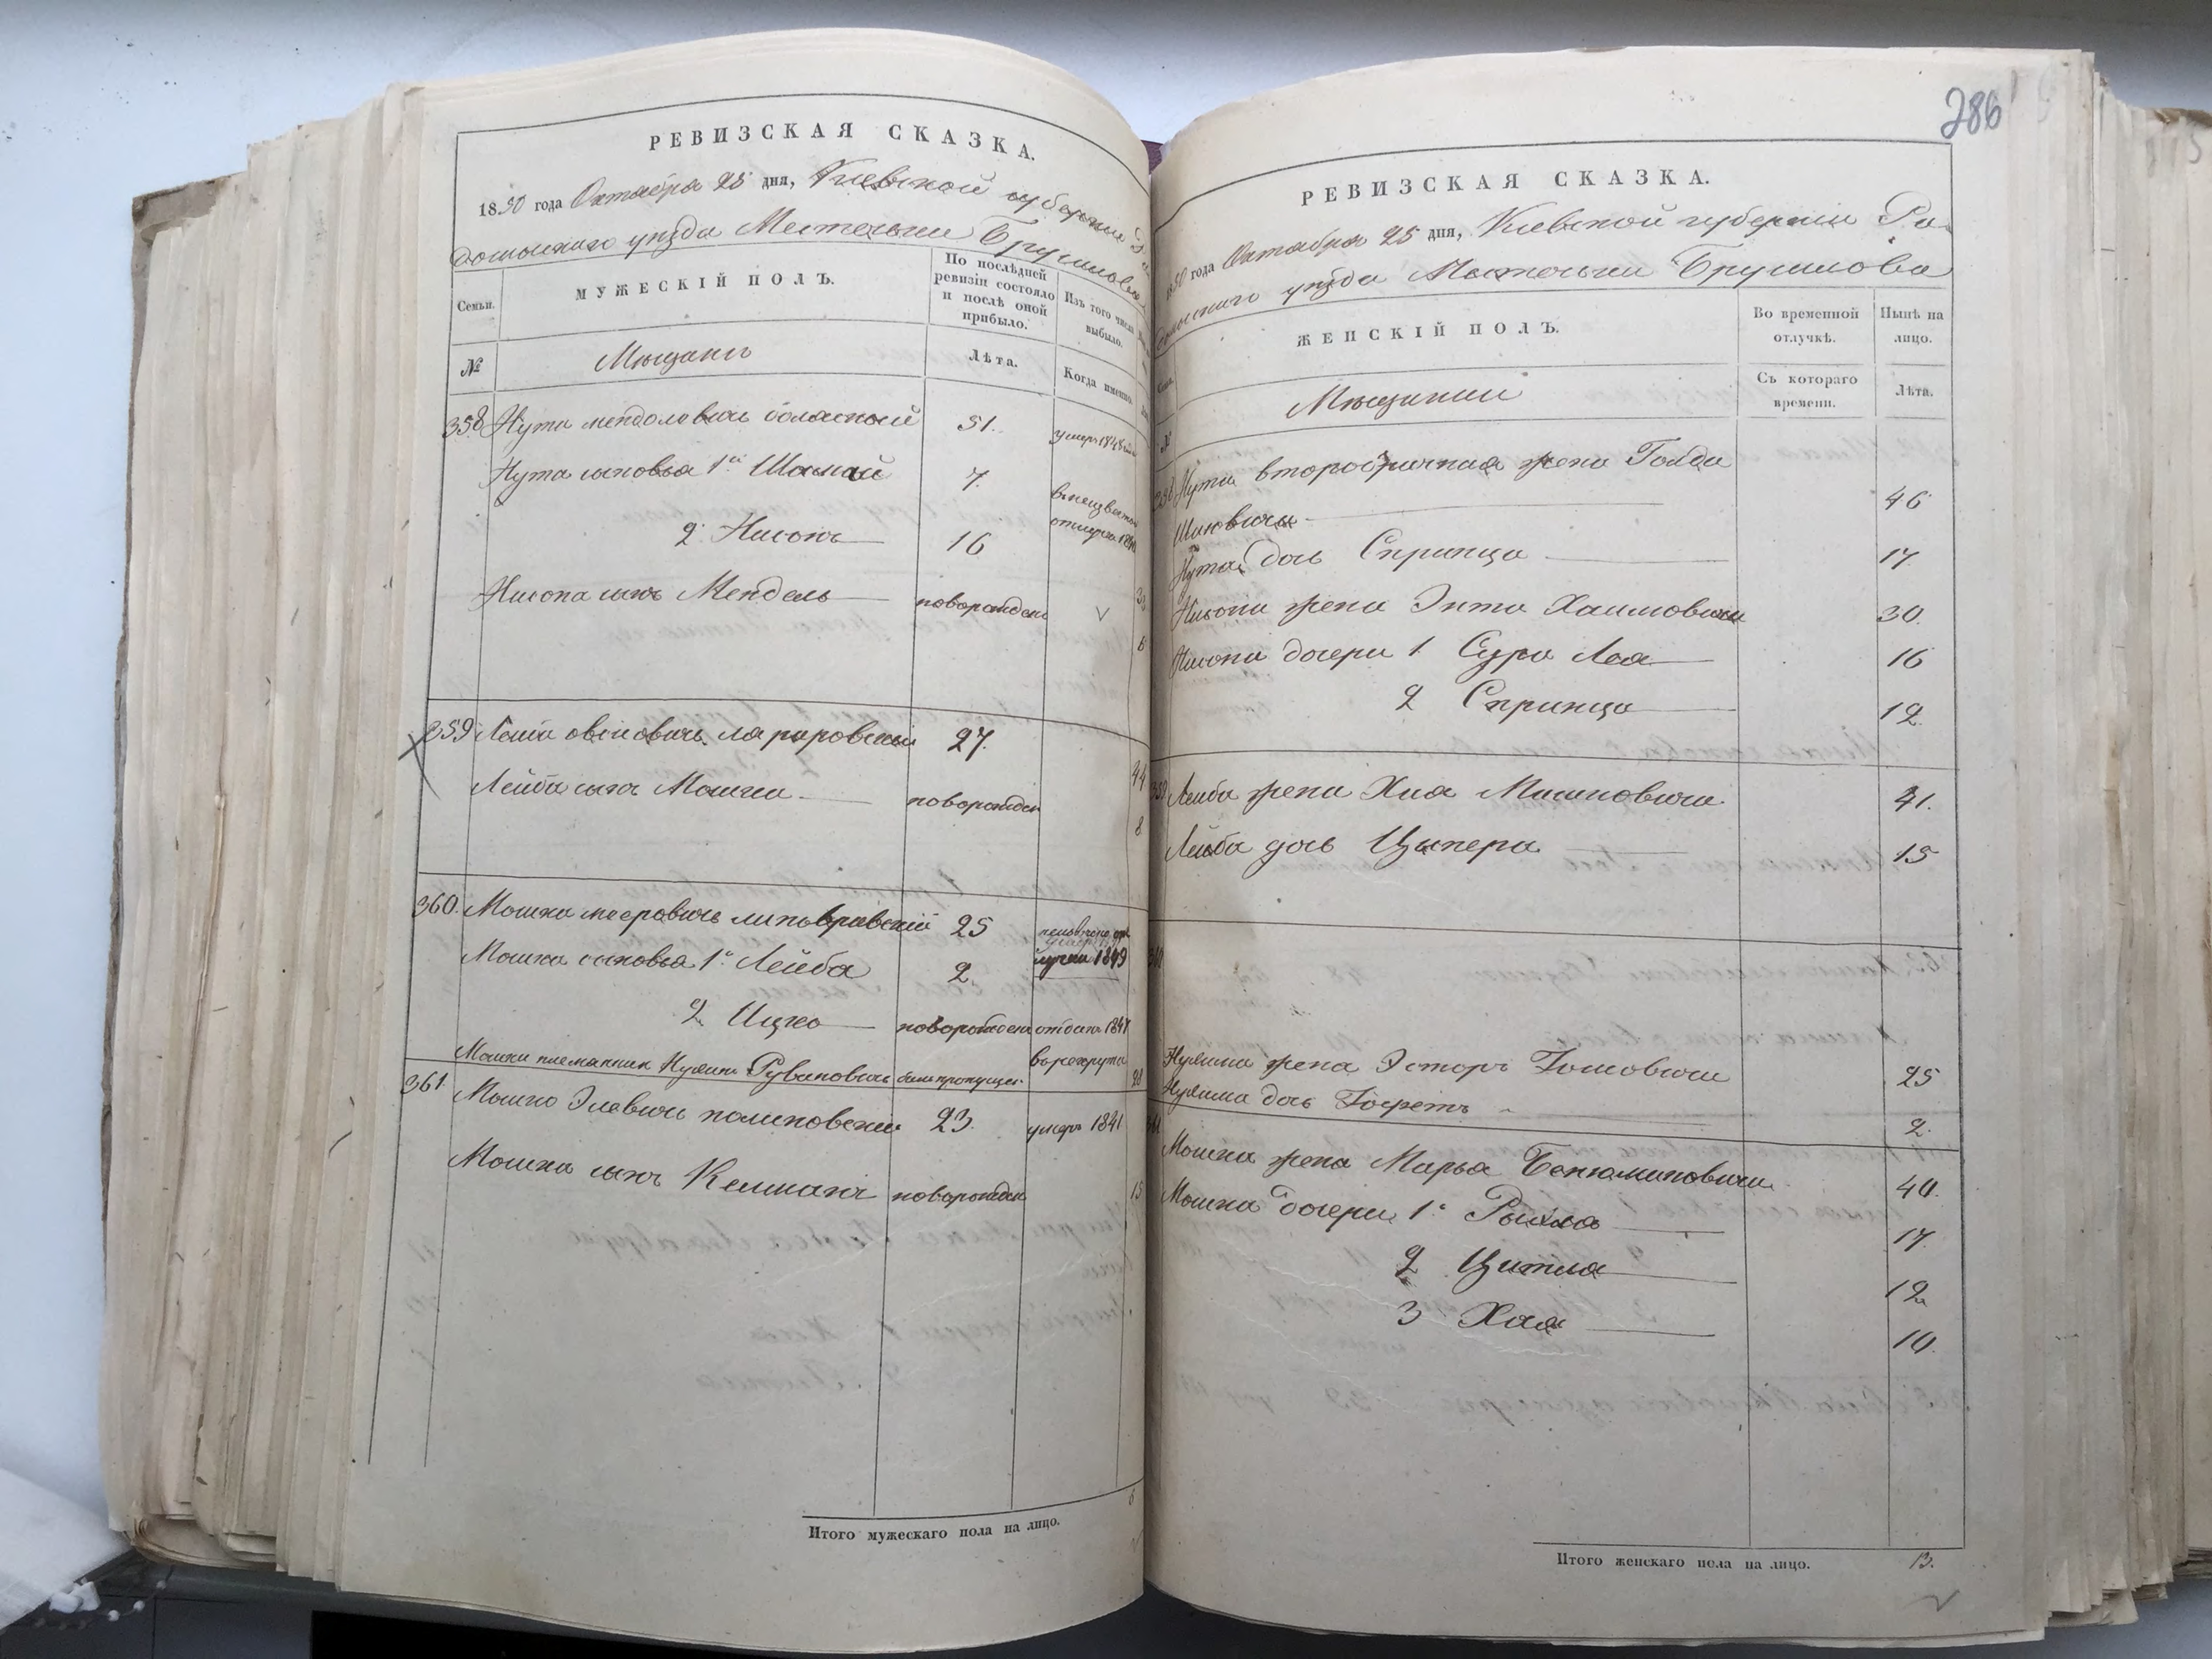 РЕВИЗСКАЯ СКАЗКА.
1850 года Октября 25 дня, Киевской губернии Ра
домысльского уезда Местечка Брусилова
Семьи.
МУЖЕСКІЙ ПОЛЪ.
По послѣдней
ревизіи состояло
и послѣ оной
прибыло.
Изъ того числа
выбыло.
№
Мещане
Лѣта.
Когда именно.
358 Нута менделовичъ 51. умеръ 1848
Нута сыновья 1й Шамай 7. в неизвестной
отлучке
2й Нисонъ 16
Нисона сынъ Мендель новорожден
8
359 Лейба овсиовичъ 27. 44
Лейба сынъ Мошко новорожден 8
360. Мошко мееровичъ липовравский 25
Мошка сыновья 1й Лейба 2 1849
2 Ицко новорожден отданъ 1847
Мошки племянник Нухимъ Рувиновичъ былъ пропущен в рекруты 28
361. Мошко Элевичъ 23. умеръ 1841
Мошка сынъ Келманъ новорожден 15
Итого мужескаго пола на лицо. 6
286
РЕВИЗСКАЯ СКАЗКА.
1850 года Октября 25 дня, Киевской губерніи Ра
домысльского уезда Местечка Брусилова
ЖЕНСКІЙ ПОЛЪ.
Во временной
отлучкѣ.
Нынѣ на
лицо.
№
Мещанки
Съ котораго
времени.
Лѣта.
Нута второбрачная жена Голда
Ицковичъ 46
Нута дочь Спринца 17
Нисона жена Энта Хаимовичъ 30.
Нисона дочери 1 Сура Лея 16
2 Спринца 12
359 Лейба жена Хая Мошковичъ 41.
Лейба дочь Ципера 15
360
Нухима жена Эстеръ Гошовичъ 25
Нухима дочь 2.
361 Мошка жена Марья Бенюминовичъ 40.
Мошка дочери 1й Рыхла 17.
2 Цитла 12
3 Хая 10.
Итого женскаго пола на лицо. 13.